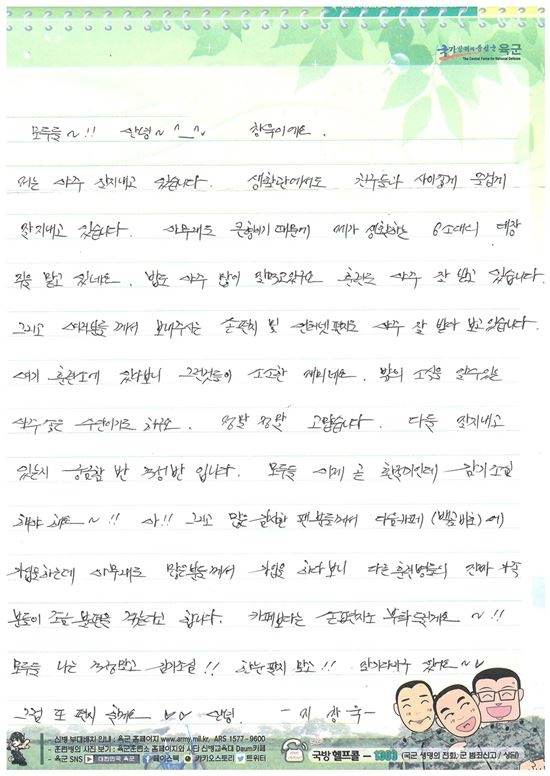 국가방위의 중심군 육군
The Central Force for National Defense
모두들~!! 안녕~^_^~ 창욱이에요.
저는 아주 잘지내고 있습니다. 생활관에서도 친구들과 사이좋게 즐겁게
잘지내고 있습니다. 아무래도 분대장이기 때문에 제가 생활하는 소대에서 대장
직을 맡고 있네요. 밥도 아주 많이 잘먹고있구요 훈련도 아주 잘 받고 있습니다.
그리고 여러분들께서 보내주시는 손편지 및 인터넷편지도 아주 잘 받아 보고있습니다.
여기 훈련소에 있다보니 그런것들이 소소한 재미네요. 밖의 소식을 알수있는
아주 좋은 수단이기도 하구요. 정말 정말 고맙습니다. 다들 잘지내고
있는지 궁금함 반 걱정반 입니다. 모두들 이제 곧 환절기인데 감기조심
해야 해요~!! 아!! 그리고 많은 팬분들께서 다음카페 (백곰바보)에
가입을하는데 아무래도 많은분들께서 가입을 하다보니 다른 훈련병들의 진짜 가족
분들이 조금 불편을 겪는다고 합니다. 카페보다는 손편지로 부탁드릴게요~!!
모두들 나는 걱정말고 감기조심!! 한눈팔지 말고!! 잘기다리구 있어요~
그럼 또 편지 쓸게요 안녕. -지 창 욱-
- 신병 부대배치 안내 : 육군 홈페이지 www.army.mil.kr, ARS 1577-9600
- 훈련병의 사진 보기 : 육군훈련소 홈페이지와 사단 신병교육대 Daum카페
- 육군 SNS 대한민국 육군 페이스북 카카오스토리 트위터
국방헬프콜 - 1303 (국군 생명의 전화, 군 범죄신고 / 상담)